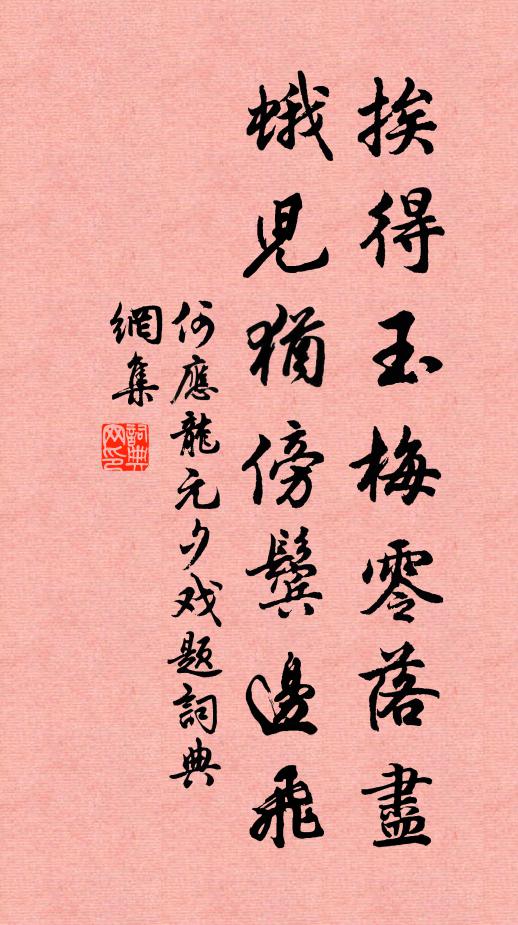 挨得玉梅零落盡
蛾兒猶傍鬓邊飛
何應龍元夕戏题詞典
網集
詞典網印